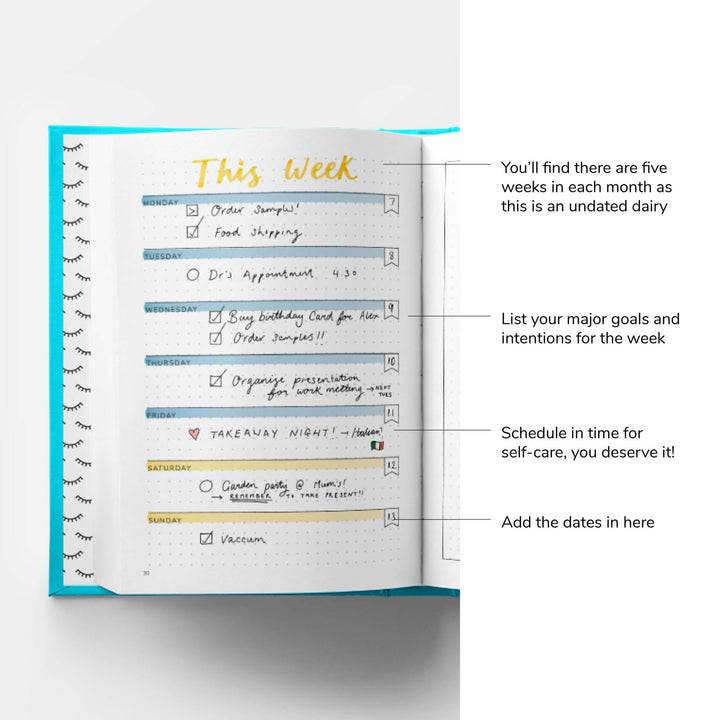 This Week
MONDAY 7
Order Sample!
Food Shopping
TUESDAY 8
Dr's Appointment 4.30
WEDNESDAY 9
Buy birthday Card for Alex
Order Samples!!
THURSDAY 10
Organise presentation
for work meeting → NEXT
TUES
FRIDAY 11
TAKEAWAY NIGHT! → Italian?
SATURDAY 12
Garden party @ Mum's!
→ REMEMBER TO TAKE PRESENT!!
SUNDAY 13
Vaccum
30
You'll find there are five
weeks in each month as
this is an undated dairy
List your major goals and
intentions for the week
Schedule in time for
self-care, you deserve it!
Add the dates in here